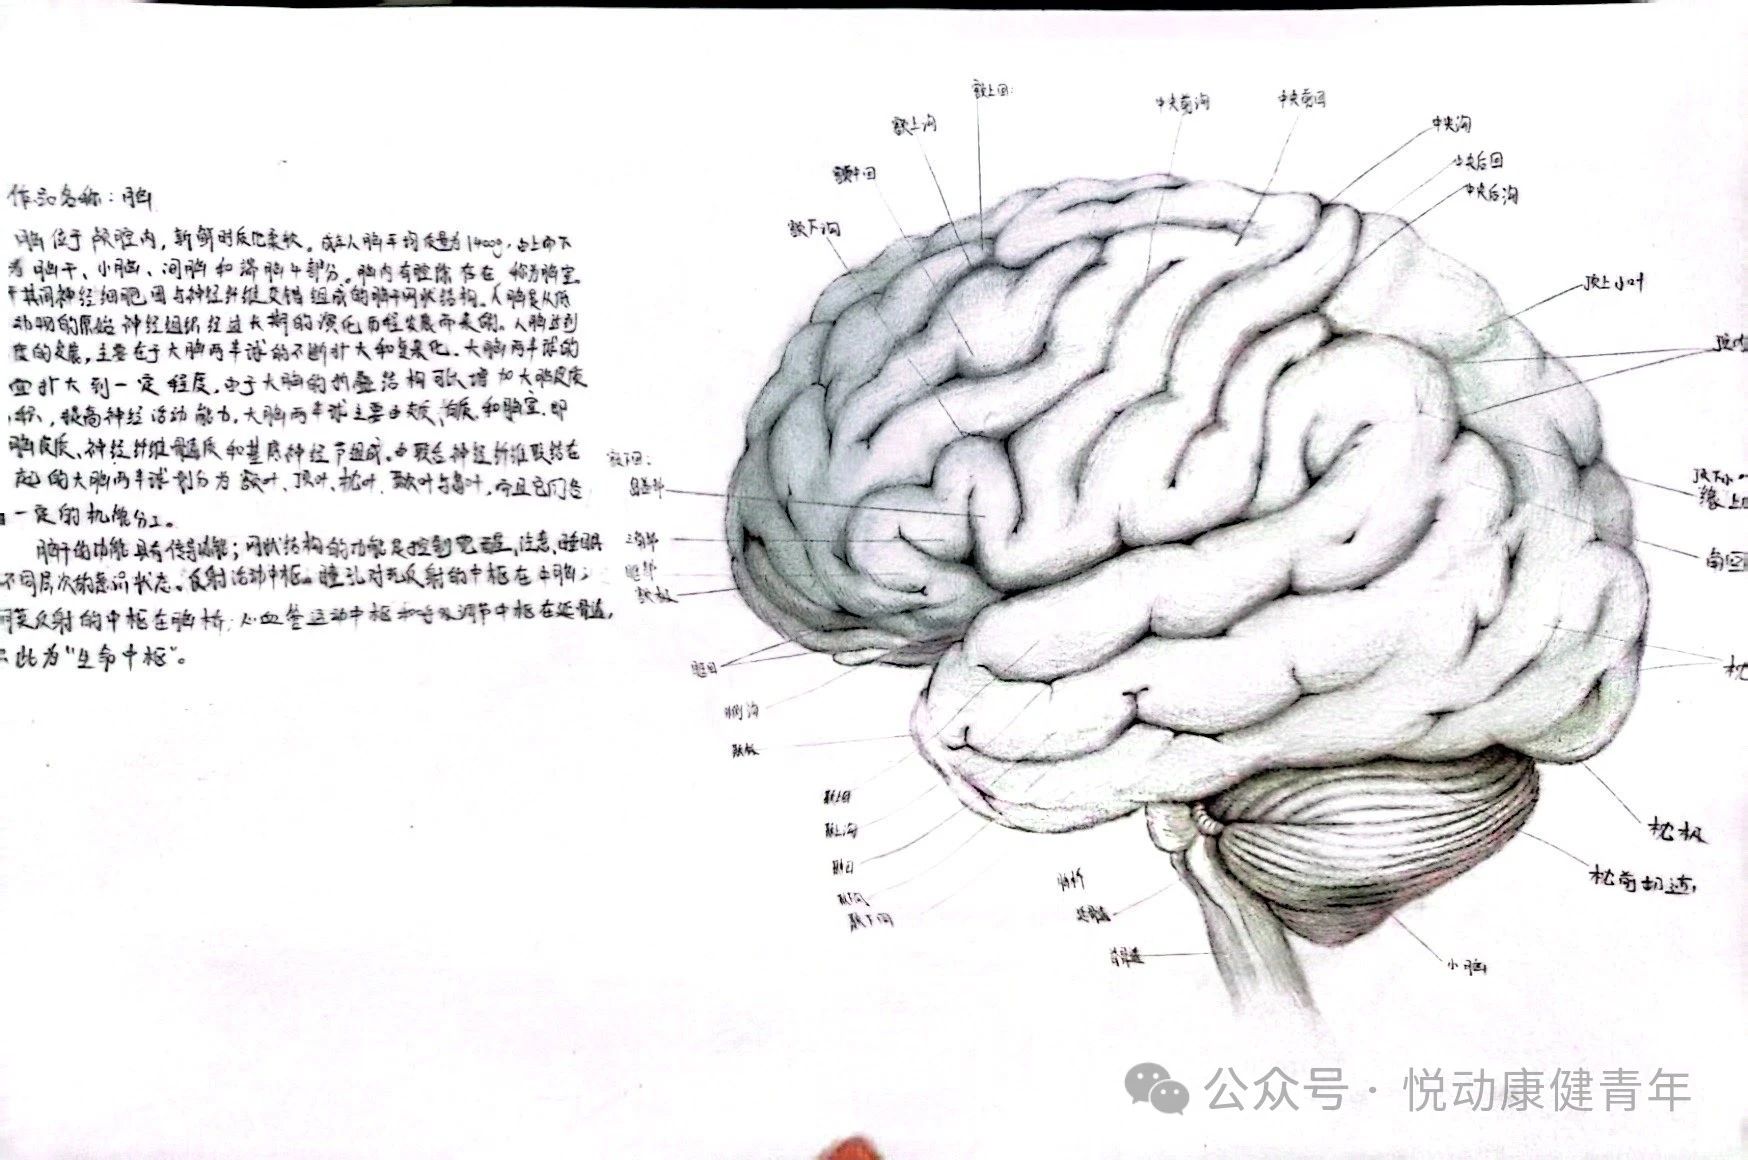 作品名称：脑
脑位于颅腔内，新鲜时质地柔软。成人脑平均质量为1400g，由上而下
为脑干、小脑、间脑和端脑4部分。脑内有腔隙存在 称为脑室
其间神经细胞团与神经纤维交错组成的脑干网状结构。人脑是从低
动物的原始神经组织经过长期的演化历程发展而来的。人脑达到
度的发展，主要在于大脑两半球的不断扩大和复杂化。大脑两半球的
扩大到一定程度，由于大脑的折叠结构可以增加大脑皮质
积，提高神经活动能力。大脑两半球主要由灰质、白质、和脑室，即
脑皮质、神经纤维髓质和基底神经节组成。由联合神经纤维联结在
起的大脑两半球划分为额叶、顶叶、枕叶、颞叶与岛叶，而且它们各
一定的机能分工。
脑干的功能具有传导功能；网状结构的功能是控制觉醒、注意、睡眠
不同层次的意识状态。反射活动中枢。瞳孔对光反射的中枢在中脑；
角膜反射的中枢在脑桥；心血管运动中枢和呼吸调节中枢在延髓，
此为“生命中枢”。
额上回：
额上沟
额中回
额下沟
中央前沟
中央前回
中央沟
中央后回
中央后沟
顶上小叶
顶内
顶下小
缘上回
角回
枕
枕极
枕前切迹
小脑
额下回：
岛盖部
三角部
眶部
额极
眶回
外侧沟
颞极
颞上回
颞上沟
颞中回
颞下沟
颞下回
脑桥
延髓
脊髓
公众号·悦动康健青年